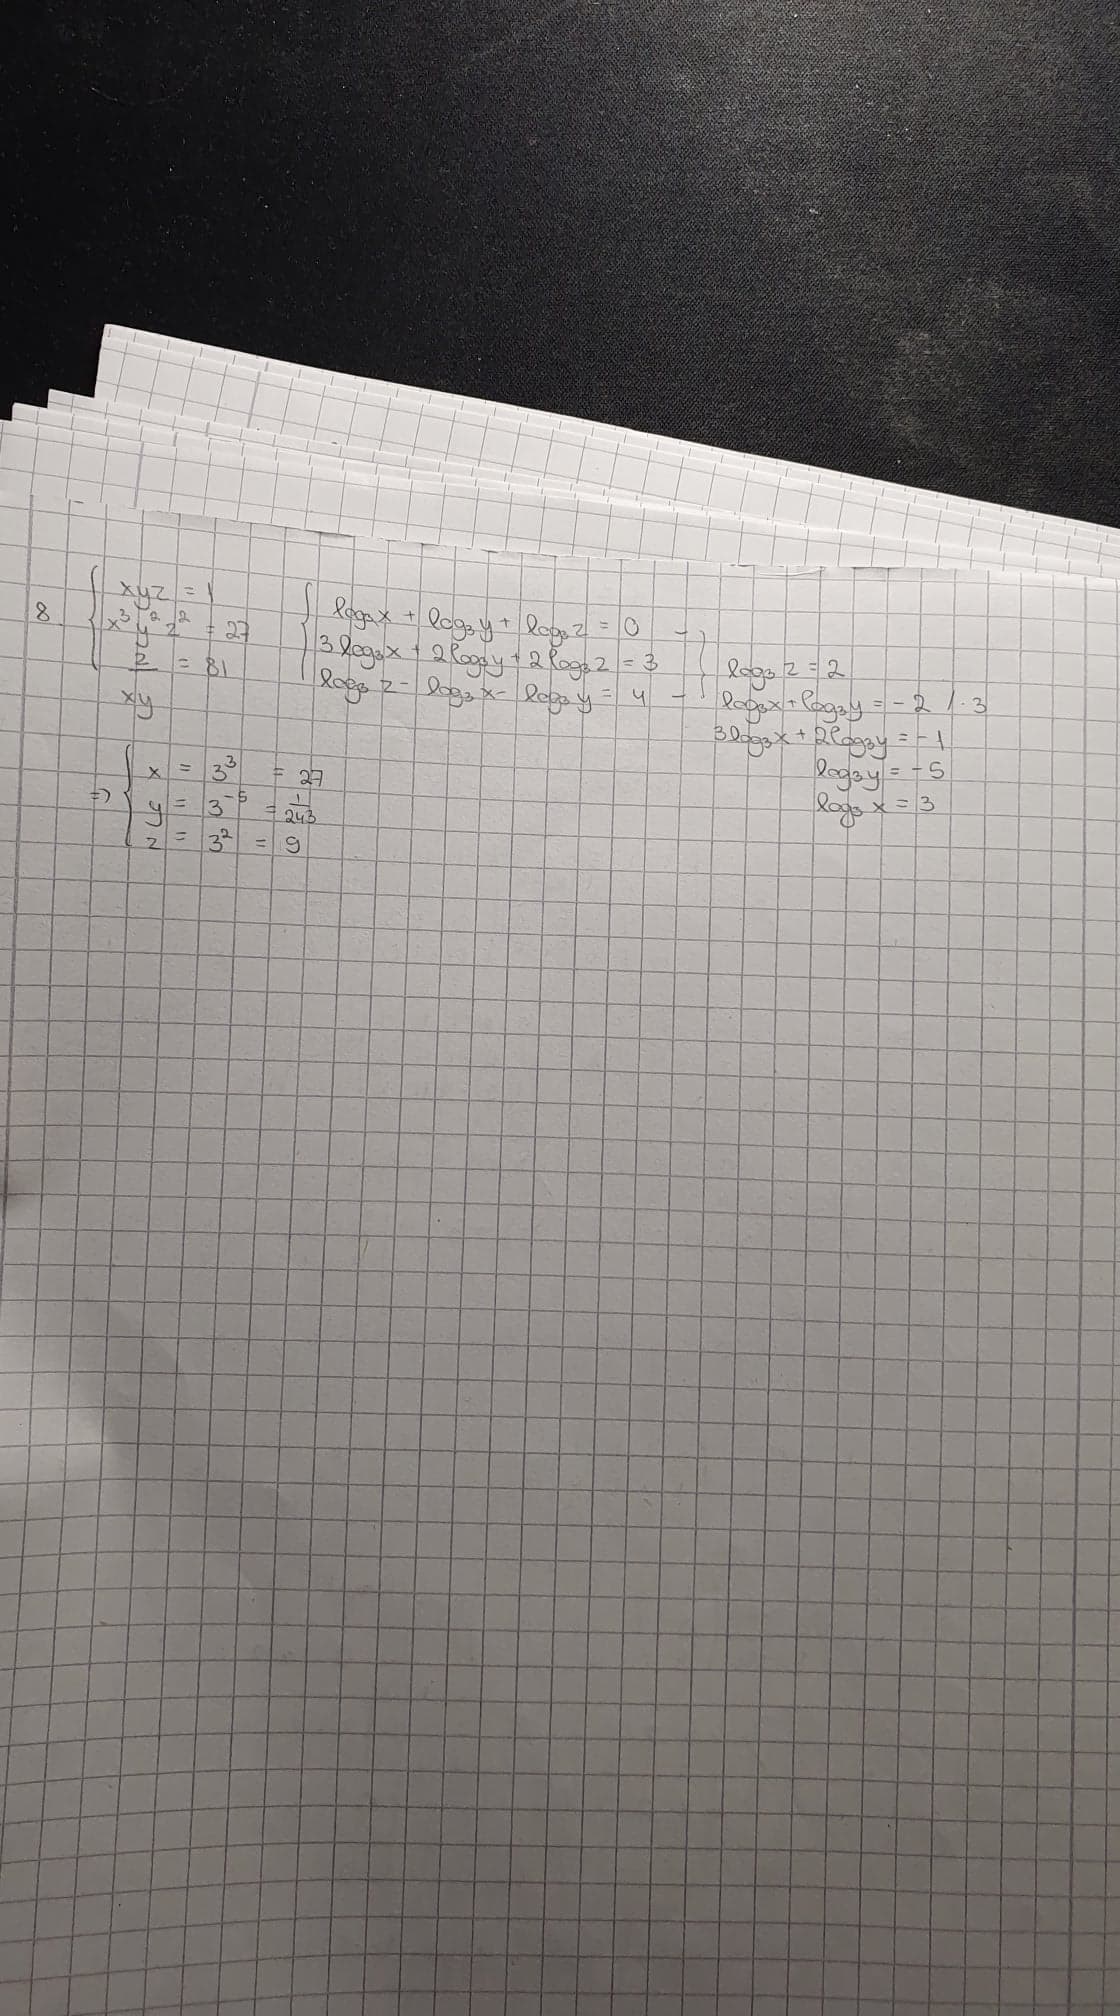 8. xyz = 1
x³y²z² = 27
z/xy = 81
log₃x + log₃y + log₃z = 0
3log₃x + 2log₃y + 2log₃z = 3
log₃z - log₃x - log₃y = 4
log₃z = 2
log₃x + log₃y = -2 /·3
3log₃x + 2log₃y = -1
log₃y = -5
log₃x = 3
=> x = 3³ = 27
y = 3⁻⁵ = 1/243
z = 3² = 9